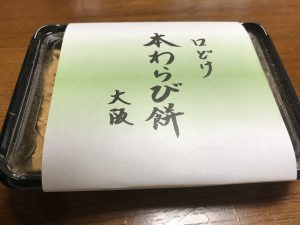 口どけ
本わらび餅
大阪